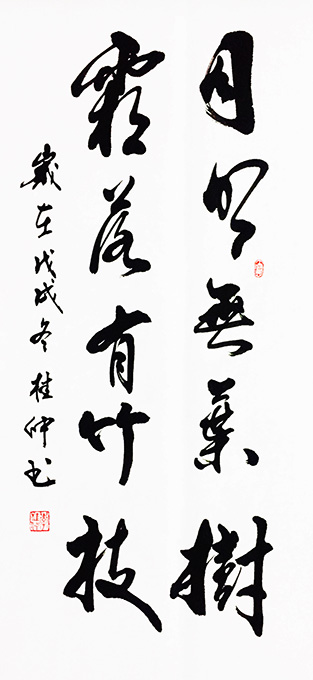 月明無葉樹
霜落有竹枝
歲在戊戌冬桂仲书